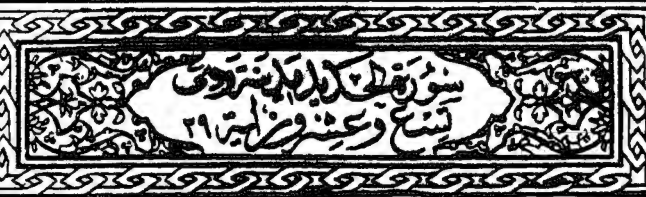 سُورَةُ الْحَدِيدِ مَدَنِيَّةٌ وَهِيَ
تِسْعٌ وَعِشْرُونَ آيَةً ٢٩